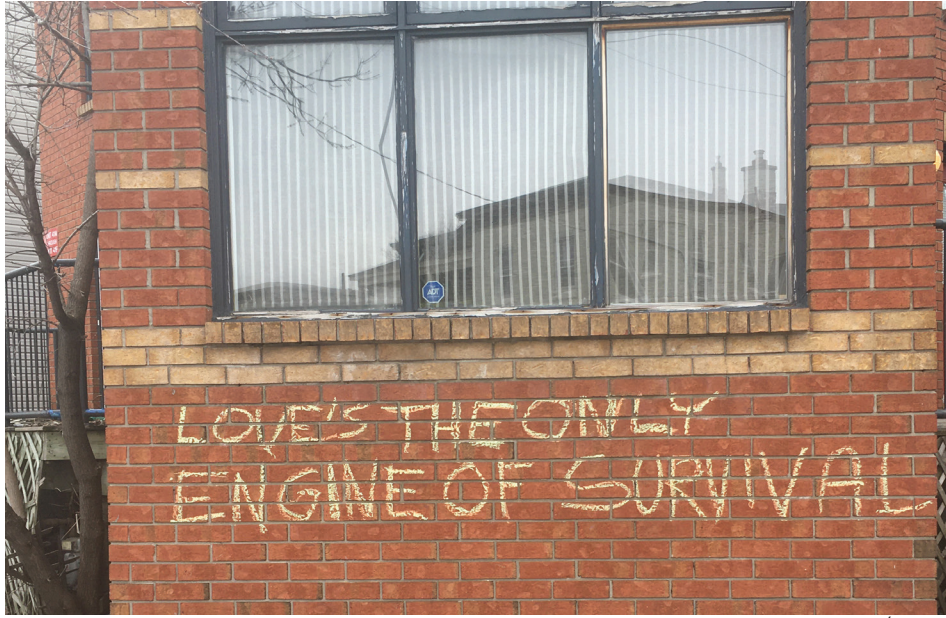 ADT
LOVE'S THE ONLY
ENGINE OF SURVIVAL